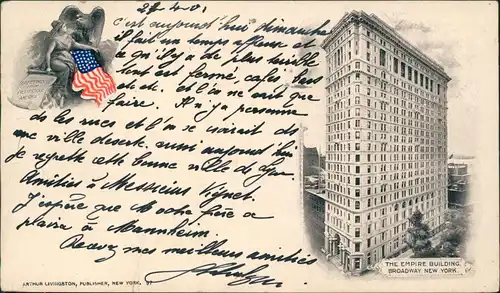 28-4-01
C'est aujourd'hui dimanche
il fait un temps affreux et ce
qu'il y a de plus terrible
tout est fermé, cafés, bars
etc. etc. et l'on ne sait que
faire. Il n'y a personne
ds les rues et l'on se croirait ds
une ville déserte. Aussi aujourd'hui
je regrette cette bonne ville de
Amitiés à Messieurs
J'espère que Mr votre frère a
plaira à Mannheim.
Recevez mes meilleures amitiés
ARTHUR LIVINGSTON, PUBLISHER, NEW YORK, 97
THE EMPIRE BUILDING,
BROADWAY NEW YORK.